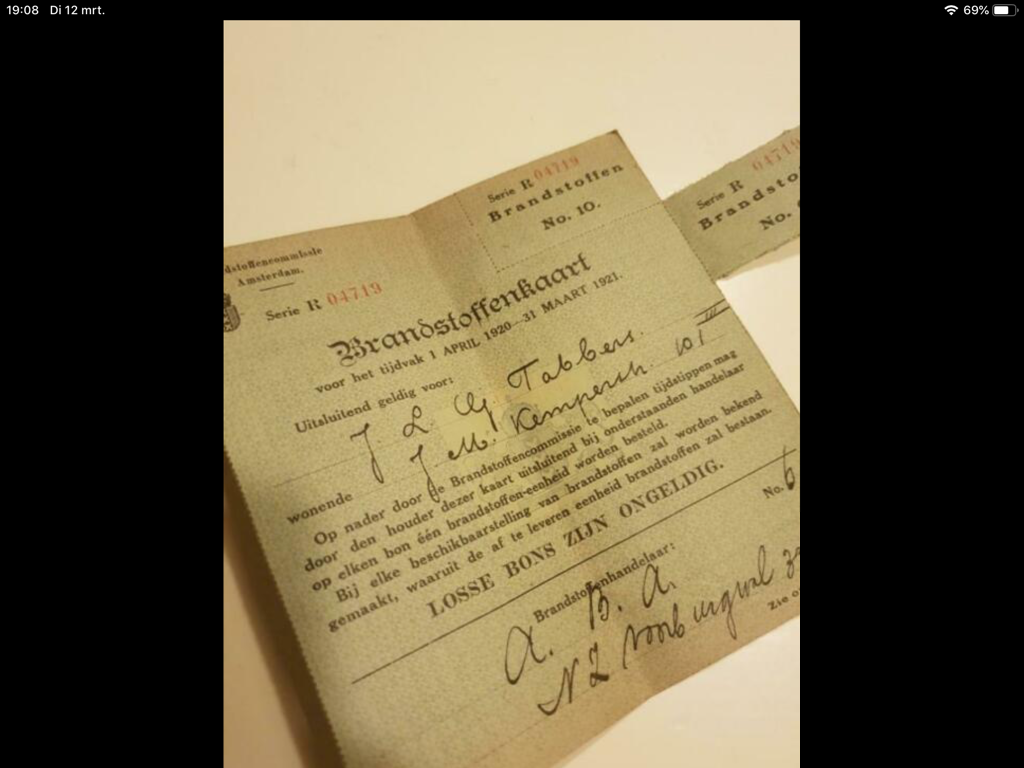 19:08 Di 12 mrt. 69%
Serie R 04719
Brandstoffen
No. 10.
Serie R 04719
Brandsto
No.
dstoffencommissie
Amsterdam.
Serie R 04719
Brandstoffenkaart
voor het tijdvak 1 APRIL 1920-31 MAART 1921.
Uitsluitend geldig voor:
J L G Tabbers.
wonende J M. Kemperstr. 101 III
Op nader door de Brandstoffencommissie te bepalen tijdstippen mag
door den houder dezer kaart uitsluitend bij onderstaanden handelaar
op elken bon één brandstoffen-eenheid worden besteld.
Bij elke beschikbaarstelling van brandstoffen zal worden bekend
gemaakt, waaruit de af te leveren eenheid brandstoffen zal bestaan.
LOSSE BONS ZIJN ONGELDIG.
Brandstoffenhandelaar: No. 6
A. B. A.
N Z Voorburgwal
Zie